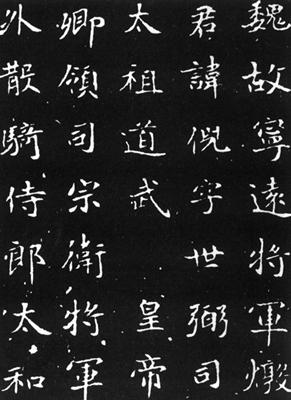 魏故寧遠將軍燉
君諱倪字世弼司
太祖道武 皇帝
卿領司宗衛將軍
外散騎侍郎太和